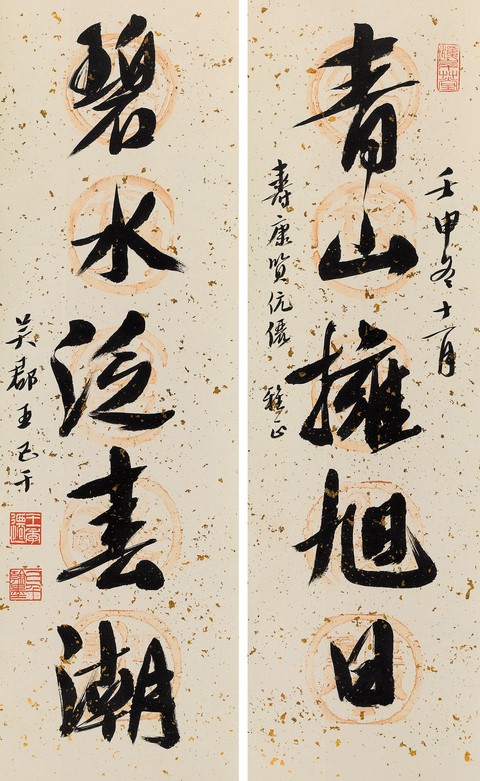 壬申冬十一月
青山擁旭日
壽康賢伉儷 雅正
碧水泛春潮
吳郡王己千